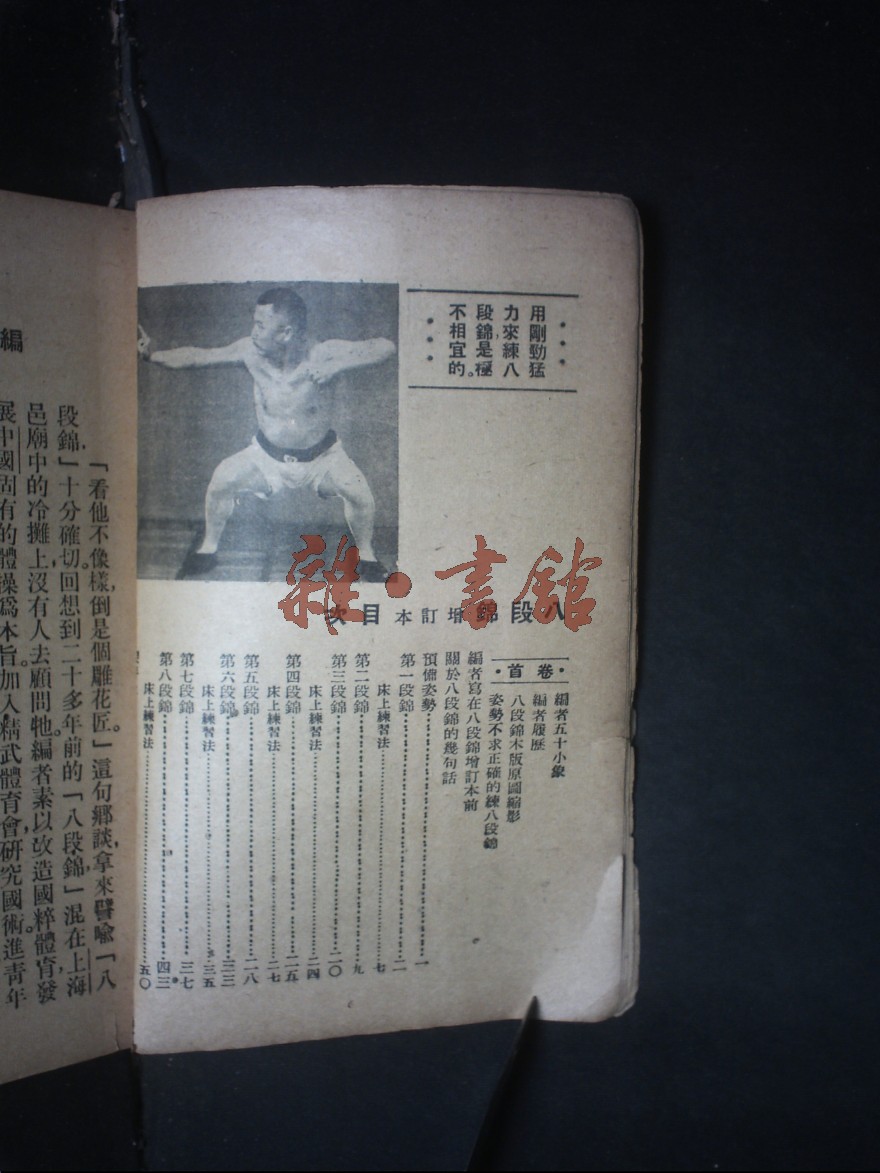 用剛勁猛
力來練八
段錦，是極
不相宜的。
八段錦增訂本目次
卷首
編者五十小象
編者履歷
八段錦木版原圖縮影
姿勢不求正確的練八段錦
編者寫在八段錦增訂本前
關於八段錦的幾句話
預備姿勢 一
第一段錦 二
床上練習法 七
第二段錦 九
第三段錦 二〇
床上練習法 二四
第四段錦 二五
床上練習法 二七
第五段錦 二八
第六段錦 三三
床上練習法 三五
第七段錦 三七
第八段錦 四三
床上練習法 五〇
編
「看他不像樣，倒是個雕花匠。」這句鄉談，拿來譬喻「八
段錦」十分確切。回想到二十多年前的「八段錦」混在上海
邑廟中的冷攤上，沒有人去顧問牠。編者素以改造國粹體育，發
展中國固有的體操爲本旨。加入精武體育會，研究國術，進青年
雜·書館